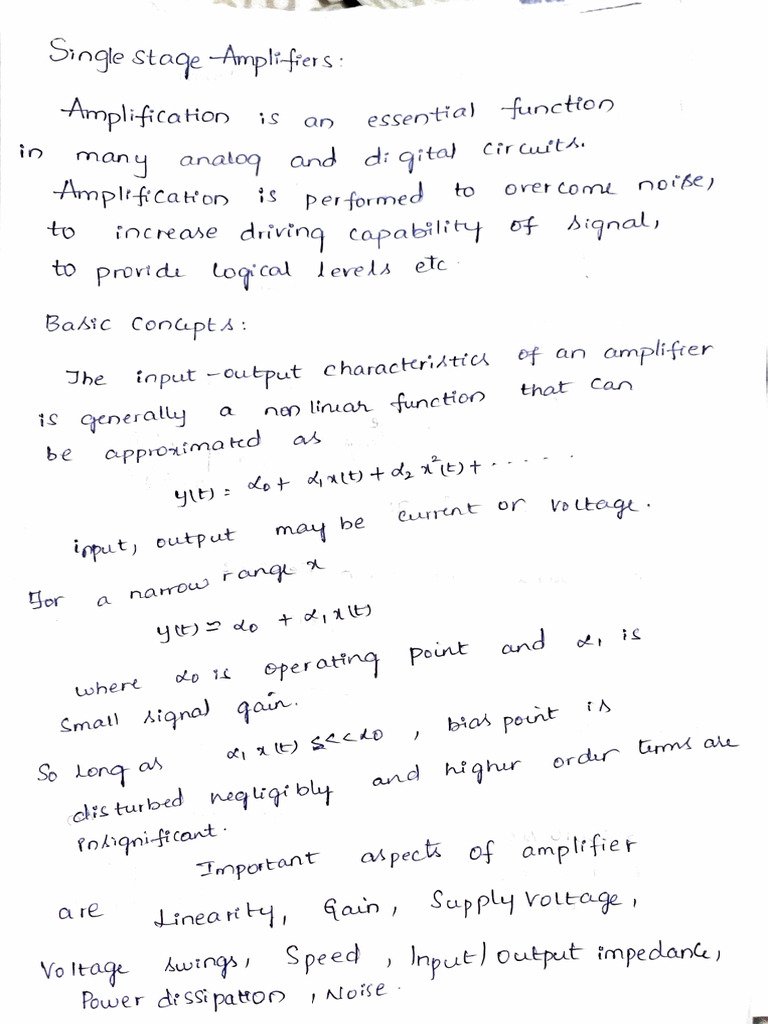 Single stage Amplifiers:
Amplification is an essential function
in many analog and digital circuits.
Amplification is performed to overcome noise,
to increase driving capability of signal,
to provide logical levels etc.
Basic Concepts:
The input-output characteristics of an amplifier
is generally a non linear function that can
be approximated as
y(t) = α₀ + α₁x(t) + α₂x²(t) + ......
input, output may be current or voltage.
For a narrow range x
y(t) ≃ α₀ + α₁x(t)
where α₀ is operating point and α₁ is
small signal gain.
So long as α₁x(t) <<α₀, bias point is
disturbed negligibly and higher order terms are
insignificant.
Important aspects of amplifier
are Linearity, Gain, Supply voltage,
Voltage swings, Speed, Input/output impedance,
Power dissipation, Noise.